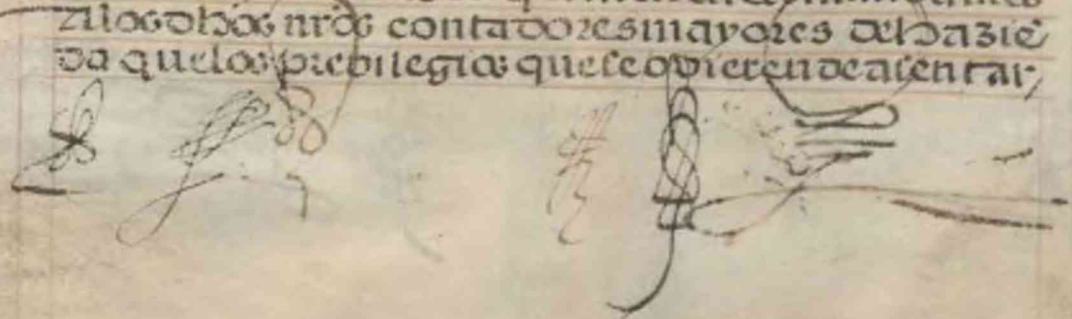 z alos dhos nros contadores mayores de hazie
da que los previlegios que se ovieren de asentar,